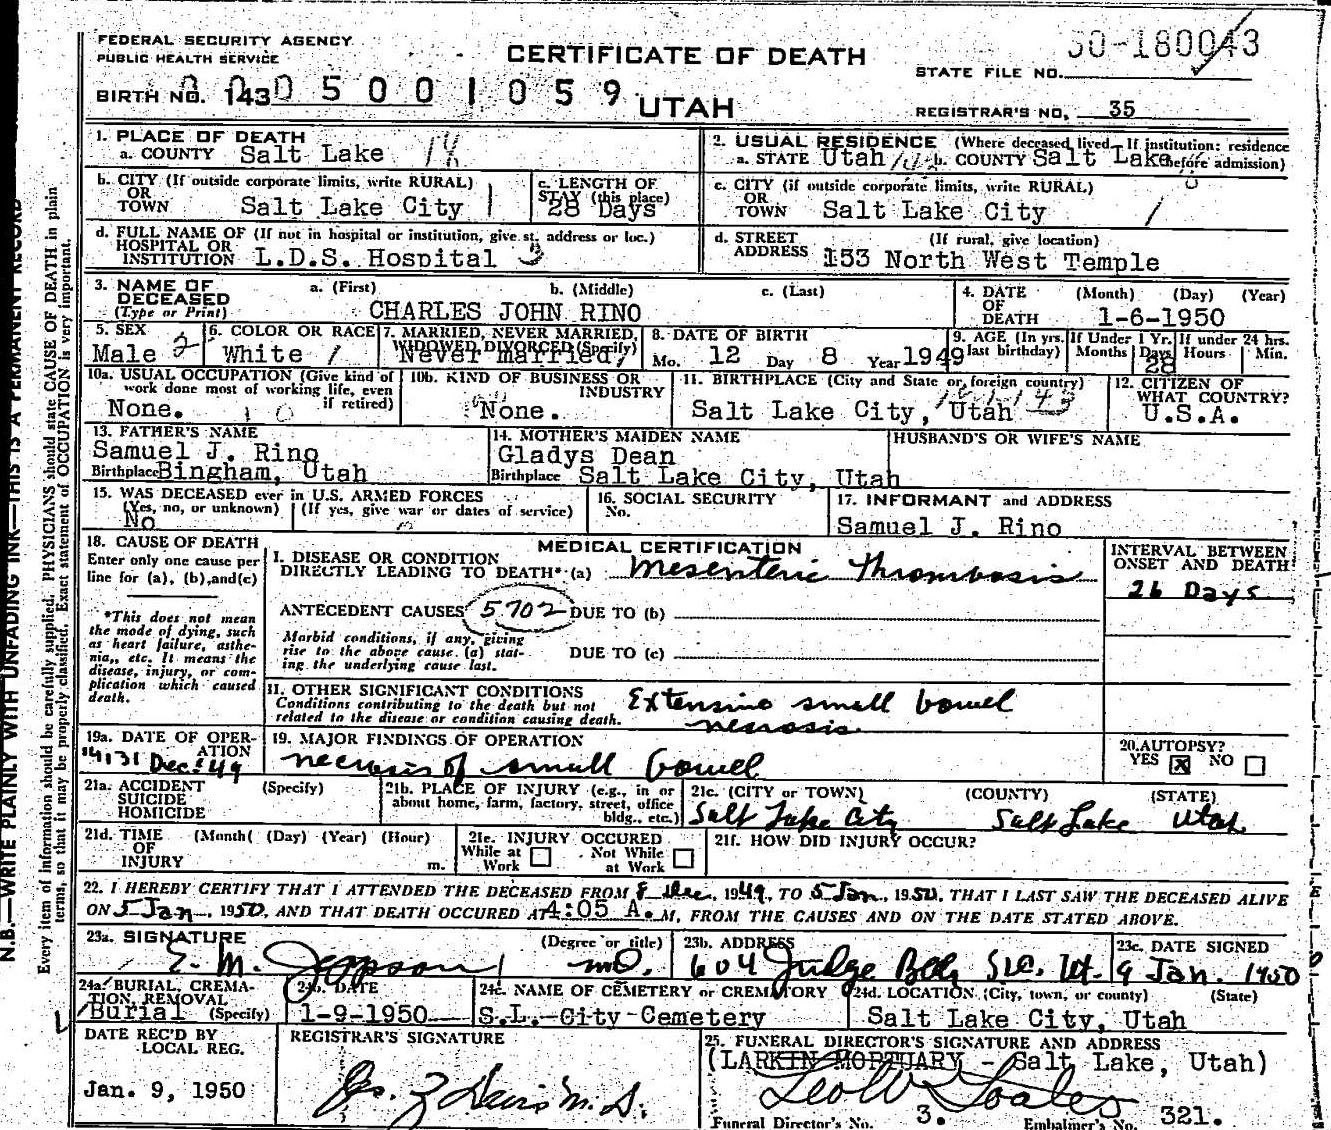 FEDERAL SECURITY AGENCY
PUBLIC HEALTH SERVICE
CERTIFICATE OF DEATH
UTAH
STATE FILE NO. 50-180043
BIRTH NO. 143 0 5 0 0 1 0 5 9
REGISTRAR'S NO. 35
1. PLACE OF DEATH
a. COUNTY Salt Lake 18
2. USUAL RESIDENCE (Where deceased lived. If institution: residence before admission)
a. STATE Utah b. COUNTY Salt Lake
b. CITY (If outside corporate limits, write RURAL) OR TOWN Salt Lake City 1
c. LENGTH OF STAY (this place) 28 Days
c. CITY (if outside corporate limits, write RURAL) OR TOWN Salt Lake City 1
d. FULL NAME OF (If not in hospital or institution, give st. address or loc.)
HOSPITAL OR INSTITUTION L.D.S. Hospital 3
d. STREET ADDRESS (If rural, give location) 153 North West Temple
3. NAME OF DECEASED (Type or Print) a. (First) b. (Middle) c. (Last)
CHARLES JOHN RINO
4. DATE OF DEATH (Month) (Day) (Year)
1-6-1950
5. SEX Male 2
6. COLOR OR RACE White 1
7. MARRIED, NEVER MARRIED, WIDOWED, DIVORCED (Specify) Never married
8. DATE OF BIRTH Mo. 12 Day 8 Year 1949
9. AGE (In yrs. last birthday) If Under 1 Yr. Months Days 28 If under 24 hrs. Hours Min.
10a. USUAL OCCUPATION (Give kind of work done most of working life, even if retired) None. 1 0
10b. KIND OF BUSINESS OR INDUSTRY None.
11. BIRTHPLACE (City and State or foreign country) Salt Lake City, Utah
12. CITIZEN OF WHAT COUNTRY? U.S.A.
13. FATHER'S NAME
Samuel J. Rino
Birthplace Bingham, Utah
14. MOTHER'S MAIDEN NAME
Gladys Dean
Birthplace Salt Lake City, Utah
HUSBAND'S OR WIFE'S NAME
15. WAS DECEASED ever in U.S. ARMED FORCES
(Yes, no, or unknown) (If yes, give war or dates of service)
No
16. SOCIAL SECURITY No.
17. INFORMANT and ADDRESS
Samuel J. Rino
18. CAUSE OF DEATH
Enter only one cause per line for (a), (b), and (c)
*This does not mean the mode of dying, such as heart failure, asthenia, etc. It means the disease, injury, or complication which caused death.
MEDICAL CERTIFICATION
I. DISEASE OR CONDITION DIRECTLY LEADING TO DEATH* (a) Mesenteric Thrombosis
INTERVAL BETWEEN ONSET AND DEATH
26 Days
ANTECEDENT CAUSES 5702 DUE TO (b)
Morbid conditions, if any, giving rise to the above cause (a) stating the underlying cause last.
DUE TO (c)
II. OTHER SIGNIFICANT CONDITIONS
Conditions contributing to the death but not related to the disease or condition causing death.
Extensive small bowel necrosis
19a. DATE OF OPERATION Dec. 49
19. MAJOR FINDINGS OF OPERATION
necrosis of small bowel
20. AUTOPSY? YES X NO
21a. ACCIDENT SUICIDE HOMICIDE (Specify)
21b. PLACE OF INJURY (e.g., in or about home, farm, factory, street, office bldg., etc.)
21c. (CITY or TOWN) (COUNTY) (STATE)
Salt Lake City Salt Lake Utah
21d. TIME OF INJURY (Month) (Day) (Year) (Hour) m.
21e. INJURY OCCURED While at Work Not While at Work
21f. HOW DID INJURY OCCUR?
22. I HEREBY CERTIFY THAT I ATTENDED THE DECEASED FROM 8 Dec, 1949, TO 5 Jan, 1950, THAT I LAST SAW THE DECEASED ALIVE
ON 5 Jan, 1950, AND THAT DEATH OCCURED AT 4:05 A.M, FROM THE CAUSES AND ON THE DATE STATED ABOVE.
23a. SIGNATURE (Degree or title)
E. M. Jeppson MD.
23b. ADDRESS
604 Judge Bldg SLC. Ut.
23c. DATE SIGNED
9 Jan. 1950
24a. BURIAL, CREMATION, REMOVAL (Specify) Burial
24b. DATE 1-9-1950
24c. NAME OF CEMETERY or CREMATORY S.L. City Cemetery
24d. LOCATION (City, town, or county) (State) Salt Lake City, Utah
DATE REC'D BY LOCAL REG.
Jan. 9, 1950
REGISTRAR'S SIGNATURE
M.D.
25. FUNERAL DIRECTOR'S SIGNATURE AND ADDRESS
(LARKIN MORTUARY - Salt Lake, Utah)
Funeral Director's No. 3. Embalmer's No. 321.
N.B.—WRITE PLAINLY WITH UNFADING INK—THIS IS A PERMANENT RECORD
Every item of information should be carefully supplied. PHYSICIANS should state CAUSE OF DEATH in plain
terms, so that it may be properly classified. Exact statement of OCCUPATION is very important.